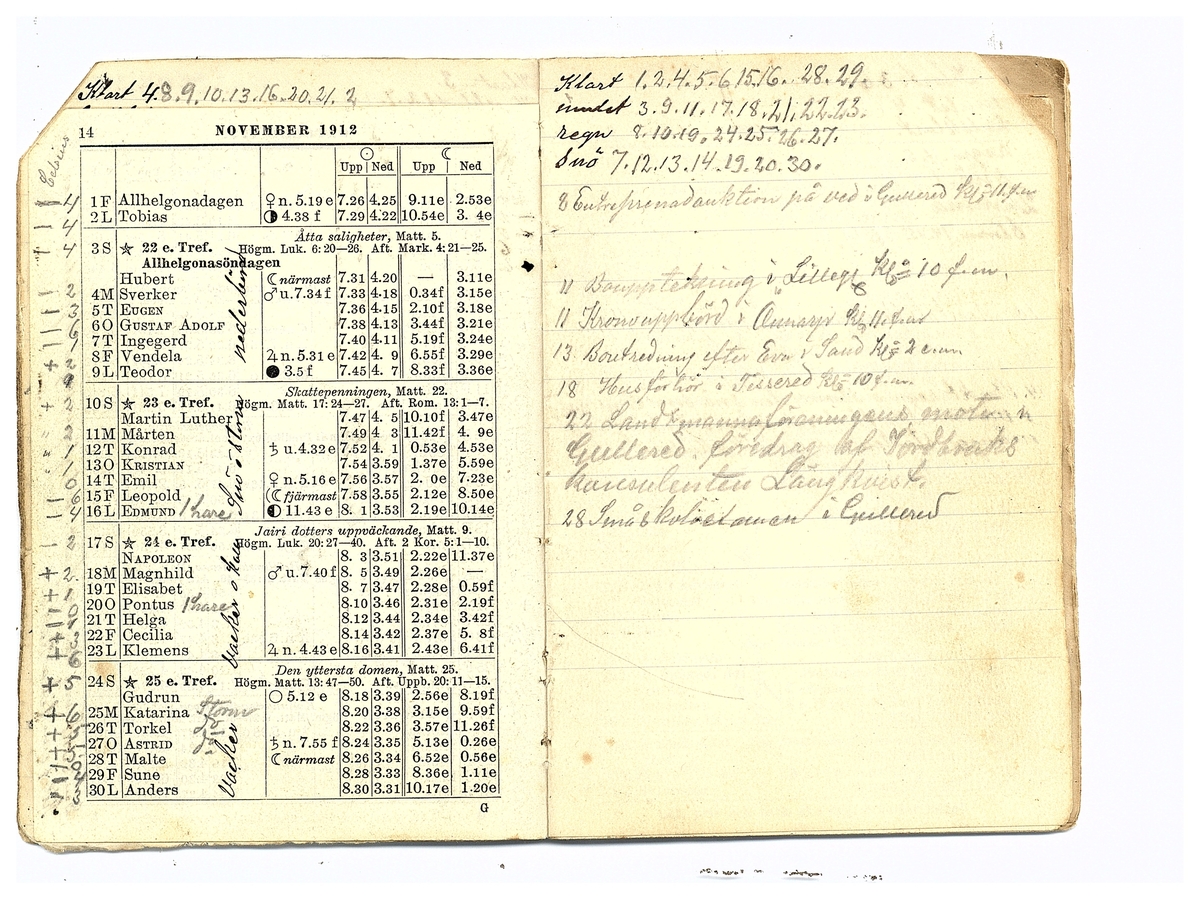 Klart 4.8.9.10.13.16.20.21.2
14 NOVEMBER 1912
Celsius
Upp Ned Upp Ned
1 F Allhelgonadagen ♀ n. 5.19 e 7.26 4.25 9.11e 2.53e
2 L Tobias 4.38 f 7.29 4.22 10.54e 3. 4e
Åtta saligheter, Matt. 5.
3 S 22 e. Tref. Högm. Luk. 6: 20—26. Aft. Mark. 4: 21—25.
Allhelgonasöndagen
Hubert ☾ närmast 7.31 4.20 — 3.11e
4 M Sverker ♂ u. 7.34 f 7.33 4.18 0.34f 3.15e
5 T EUGEN 7.36 4.15 2.10f 3.18e
6 O GUSTAF ADOLF 7.38 4.13 3.44f 3.21e
7 T Ingegerd 7.40 4.11 5.19f 3.24e
8 F Vendela ♃ n. 5.31 e 7.42 4. 9 6.55f 3.29e
9 L Teodor 3.5 f 7.45 4. 7 8.33f 3.36e
nederbörd
Skattepenningen, Matt. 22.
10 S 23 e. Tref. Högm. Matt. 17: 24—27. Aft. Rom. 13: 1—7.
Martin Luther 7.47 4. 5 10.10f 3.47e
11 M Mårten 7.49 4. 3 11.42f 4. 9e
12 T Konrad ♄ u. 4.32 e 7.52 4. 1 0.53e 4.53e
13 O KRISTIAN 7.54 3.59 1.37e 5.59e
14 T Emil ♀ n. 5.16 e 7.56 3.57 2. 0e 7.23e
15 F Leopold ☾ fjärmast 7.58 3.55 2.12e 8.50e
16 L EDMUND 1 hare 11.43 e 8. 1 3.53 2.19e 10.14e
Snö o Storm
Jairi dotters uppväckande, Matt. 9.
17 S 24 e. Tref. Högm. Luk. 20: 27—40. Aft. 2 Kor. 5: 1—10.
NAPOLEON 8. 3 3.51 2.22e 11.37e
18 M Magnhild ♂ u. 7.40 f 8. 5 3.49 2.26e —
19 T Elisabet 8. 7 3.47 2.28e 0.59f
20 O Pontus 1 hare 8.10 3.46 2.31e 2.19f
21 T Helga 8.12 3.44 2.34e 3.42f
22 F Cecilia 8.14 3.42 2.37e 5. 8f
23 L Klemens ♃ n. 4.43 e 8.16 3.41 2.43e 6.41f
Vacker o
Den yttersta domen, Matt. 25.
24 S 25 e. Tref. Högm. Matt. 13: 47—50. Aft. Uppb. 20: 11—15.
Gudrun 5.12 e 8.18 3.39 2.56e 8.19f
25 M Katarina Storm 8.20 3.38 3.15e 9.59f
26 T Torkel do 8.22 3.36 3.57e 11.26f
27 O ASTRID do ♄ n. 7.55 f 8.24 3.35 5.13e 0.26e
28 T Malte ☾ närmast 8.26 3.34 6.52e 0.56e
29 F Sune 8.28 3.33 8.36e 1.11e
30 L Anders 8.30 3.31 10.17e 1.20e
Vacker
G
Klart 1.2.4.5.6.15.16. 28.29.
mulet 3.9.11.17.18.21.22.23.
regn 8.10.19.24.25.26.27.
Snö 7.12.13.14.19.20.30.
8 Entreprenadauktion på ved i Gullered Kl 11 f.m
11 Bouppteckning i Kl 10 f.m.
11 Kronouppbörd i Kl 11 f.m
13 Boutredning efter Eva i Sand Kl 2 e.m
18 Husförhör i Tissered Kl 10 f.m.
22 Landtmannaföreningens möte i
Gullered. föredrag af Jordbruks
konsulenten Långkvist.
28 Småskol i Gullered